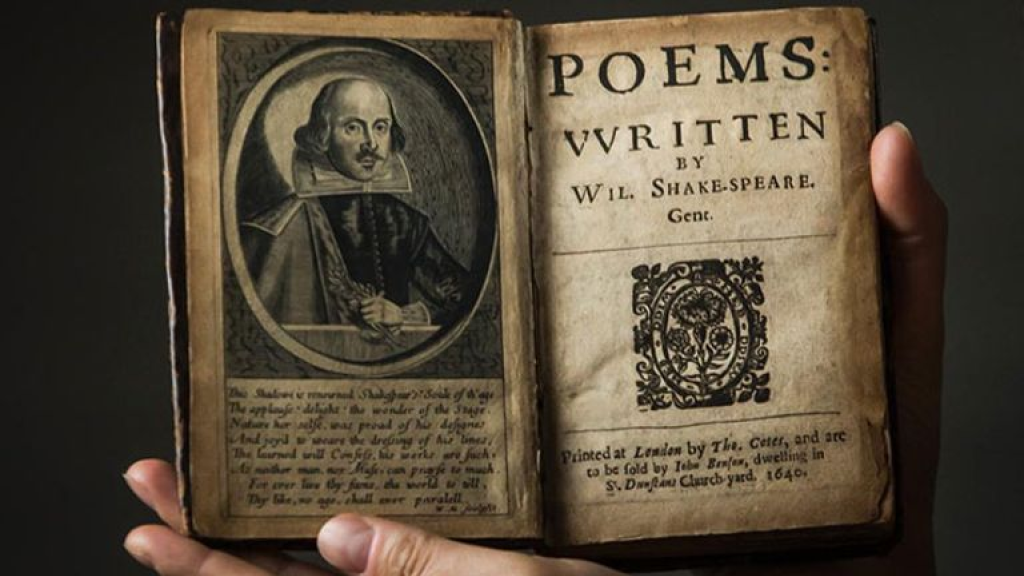 This Shadowe is renowned Shakespear's? Soule of th'age
The applause? delight? the wonder of the Stage.
Nature her selfe, was proud of his designes
And joy'd to weare the dressing of his lines,
The learned will Confess, his works are such,
As neither man, nor Muse, can prayse to much.
For ever live thy fame, the world to tell,
Thy like, no age, shall ever paralell.
W. M. sculpsit.
POEMS:
VVRITTEN
BY
WIL. SHAKE-SPEARE.
Gent.
Printed at London by Tho. Cotes, and are
to be sold by Iohn Benson, dwelling in
St. Dunstans Church-yard. 1640.